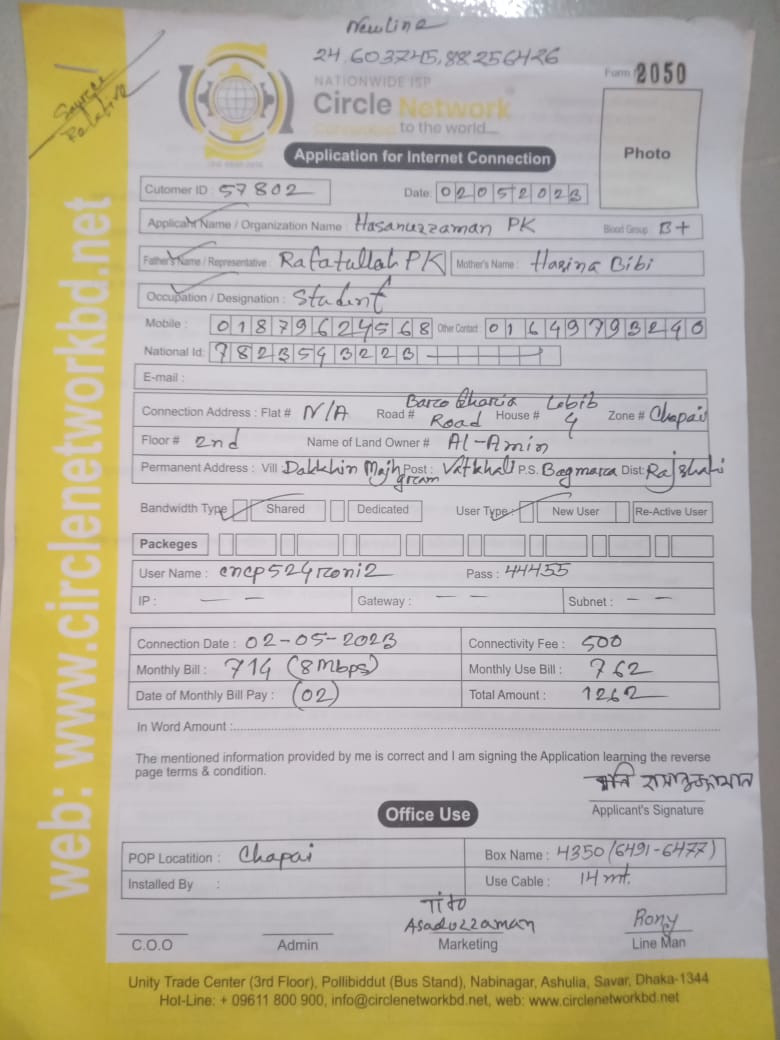 Newline
24.603745,88.256426
Form 2050
NATIONWIDE ISP
Circle Network
Connected to the world....
Relative
Photo
Application for Internet Connection
Cutomer ID : 57802
Date: 02052023
Applicant Name / Organization Name : Hasanuzzaman PK
Blood Group : B+
Father's Name / Representative : Rafatullah PK
Mother's Name : Hasina Bibi
Occupation / Designation : Student
Mobile : 01879624568
Other Contact 01649793240
National Id: 7823543223
E-mail :
Connection Address : Flat # N/A Road # Road House # 4 Zone # Chapai
Floor # 2nd Name of Land Owner # Al-Amin
Permanent Address : Vill : Dakkhin Majhgram Post : Vatkhali P.S. Bagmara Dist: Rajshahi
Bandwidth Type Shared Dedicated User Type: New User Re-Active User
Packeges
User Name : cncp524roni2 Pass : 44455
IP : — — Gateway : — — Subnet : — —
Connection Date : 02-05-2023
Connectivity Fee : 500
Monthly Bill : 714 (8Mbps)
Monthly Use Bill : 762
Date of Monthly Bill Pay : (02)
Total Amount : 1262
In Word Amount :
The mentioned information provided by me is correct and I am signing the Application learning the reverse
page terms & condition.
Applicant's Signature
Office Use
POP Locatition : Chapai
Box Name : 4350 (6491-6477)
Installed By :
Use Cable : 14 mt.
Tito
Asaduzzaman
Rony
C.O.O
Admin
Marketing
Line Man
Unity Trade Center (3rd Floor), Pollibiddut (Bus Stand), Nabinagar, Ashulia, Savar, Dhaka-1344
Hot-Line: + 09611 800 900, info@circlenetworkbd.net, web: www.circlenetworkbd.net
web: www.circlenetworkbd.net